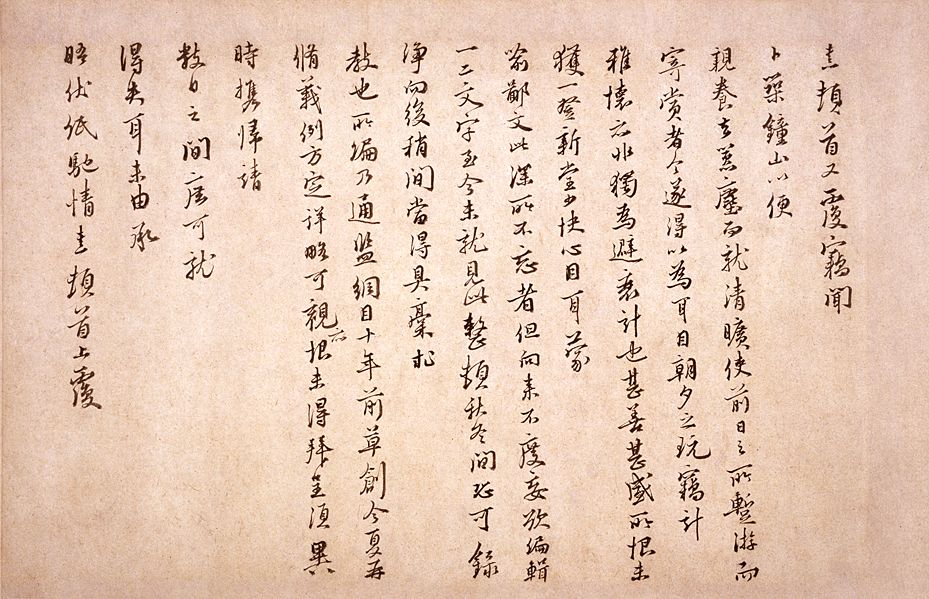 熹頓首又覆竊聞
卜築鐘山以便
親養去囂塵而就清曠使前日之所暫游而
寄賞者今遂得以為耳目朝夕之玩竊計
雅懷亦非獨為避衰計也甚善甚盛所恨未
獲一登新堂少快心目耳蒙
喻鄙文此深所不忘者但向来不度妄欲編輯
一二文字至今未就見此整頓秋冬間恐可錄
净向後稍間當得具稾求
教也所編乃通鑑綱目十年前草創今夏再
脩義例方定詳略可觀亦恨未得拜呈須異
時攜歸請
數日之間庶可就
得失耳未由承
晤伏紙馳情熹頓首上覆